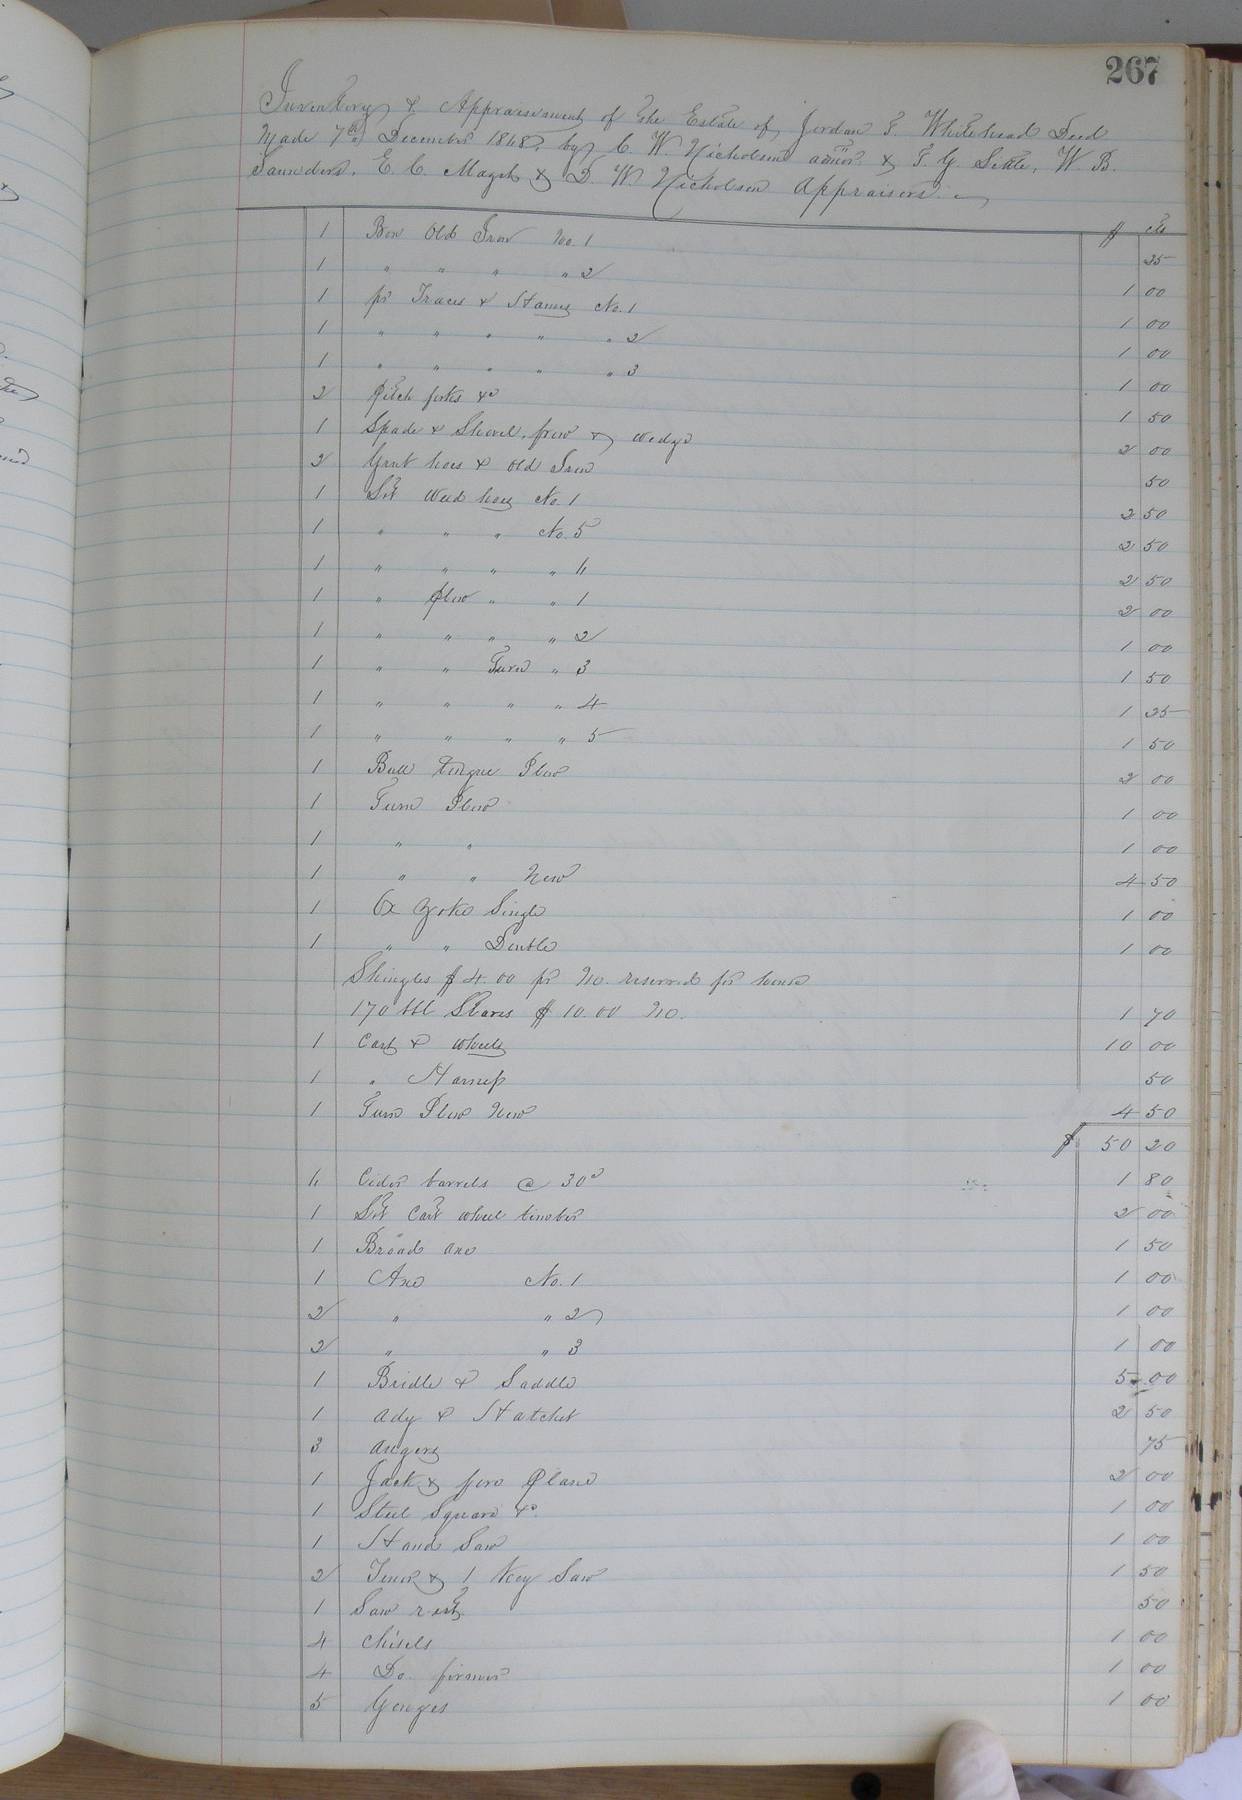 267
Inventory & Appraisement of the Estate of Jordan F. Whitehead Decd
Made 7th December 1868, by C. W. Nicholson admr. & T. G. Settle, W. B.
Saunders, E. C. Magee & D. W. Nicholson Appraisers.
$ cts
1 Box Old Iron No. 1 25
1 " " " " 2 1 00
1 pr Traces & Hames No. 1 1 00
1 " " " " " 2 1 00
1 " " " " " 3 1 00
2 Pitch forks &c 1 50
1 Spade & Shovel, frow & wedge 2 00
2 Grub hoes & old Iron 50
1 Set Weed hoes No. 1 2 50
1 " " " No. 5 2 50
1 " " " " 4 2 50
1 " Plow " " 1 2 00
1 " " " " 2 1 00
1 " " Turn " 3 1 50
1 " " " " 4 1 25
1 " " " " 5 1 50
1 Bull tongue Plow 2 00
1 Turn Plow 1 00
1 " " 1 00
1 " " New 4 50
1 Ox Yoke Single 1 00
1 " " Double 1 00
Shingles $ 4.00 pr M. reserved for house
170 bbl Staves $ 10.00 M. 1 70
1 Cart & wheels 10 00
1 " Harness 50
1 Turn Plow New 4 50
$ 50 20
6 Cider barrels @ 30c 1 80
1 Set Cart wheel timber 2 00
1 Broad axe 1 50
1 Axe No. 1 1 00
2 " " 2 1 00
2 " " 3 1 00
1 Bridle & Saddle 5 00
1 Adz & Hatchet 2 50
3 augers 75
1 Jack & fore Plane 2 00
1 Steel Square &c 1 00
1 Hand Saw 1 00
2 Tenor & 1 Key Saw 1 50
1 Saw rest 50
4 Chisels 1 00
4 Do. firmer 1 00
5 Gouges 1 00